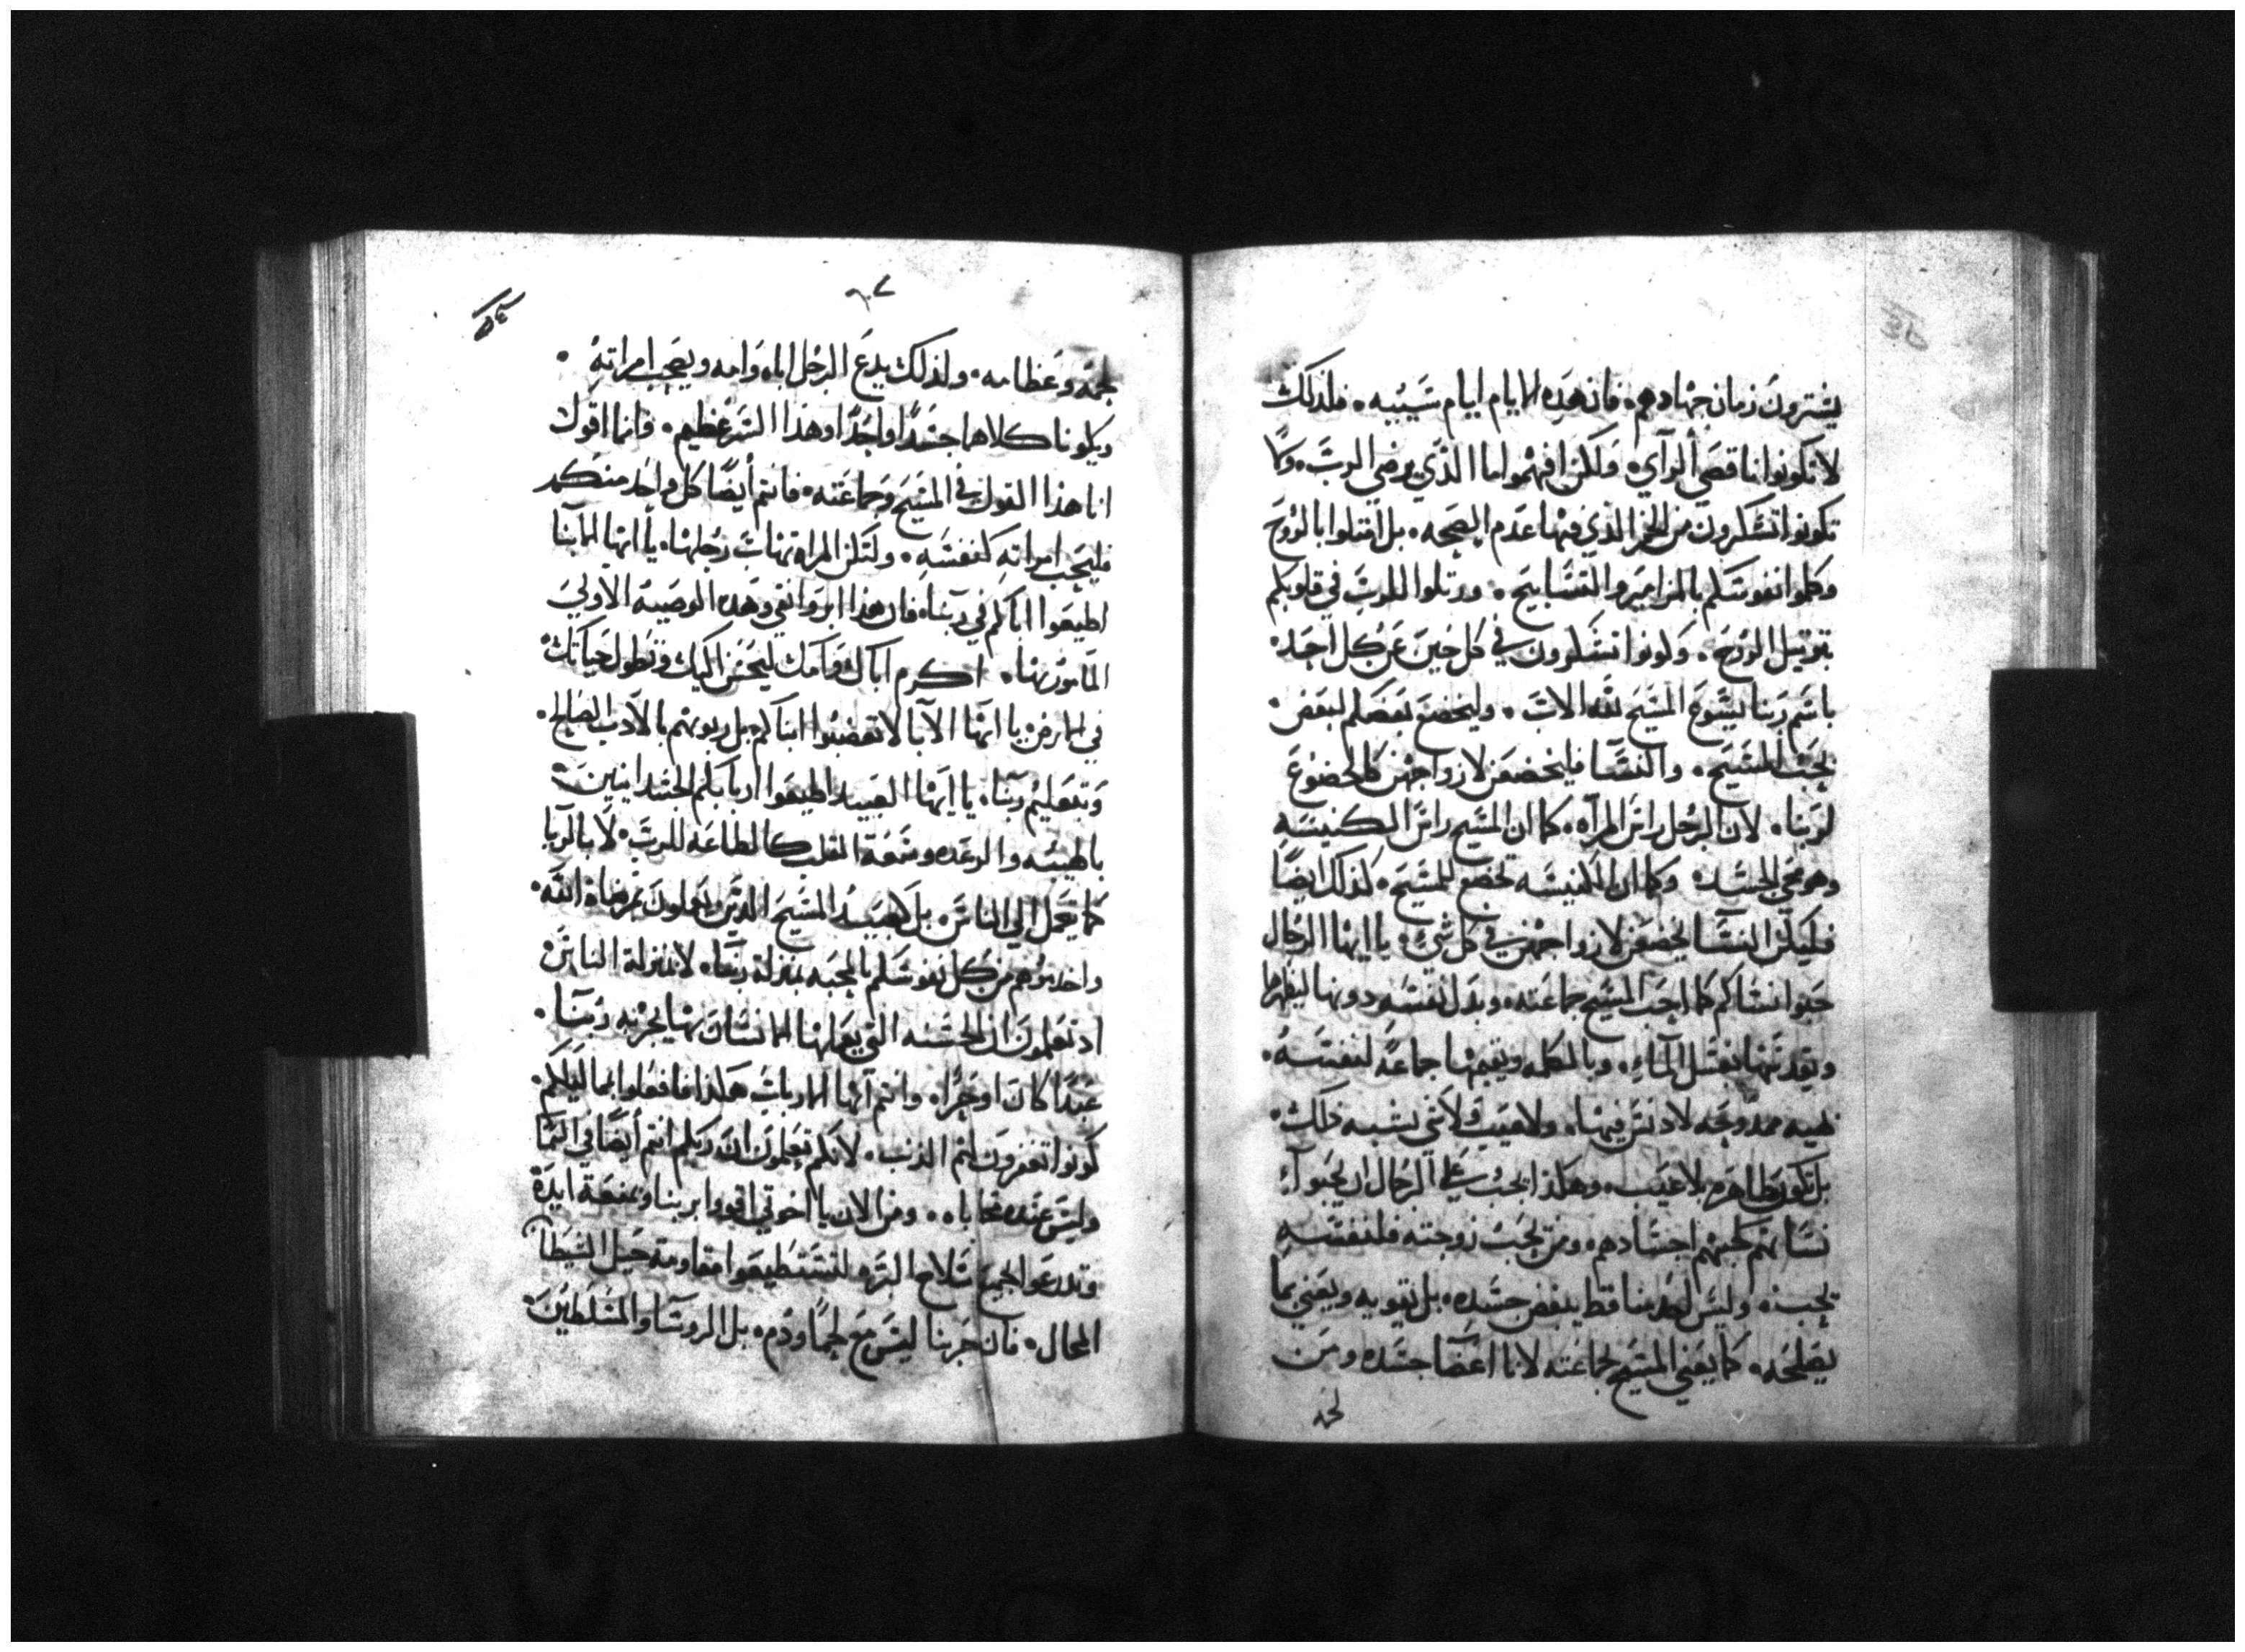 يشترون زمان جهادهم. فان هذه الايام ايام شييبه. فلذلك
لا تكونوا ناقصي الرآي. ولكن افهموا ما الذي يرضي الربّ. ولا
تكونوا تسكرون من الخمر الذي فيها عدم الصحه. بل امتلوا بالروح
وكلموا نفوسكم بالمزامير والتسابيح. ورتلوا للرب في قلوبكم
بترتيل الروح. وكونوا تشكرون في كل حين عن كل احد
باسم ربنا يشوع المسيح لله الاب. وليخضع بعضكم لبعض
بحب المسيح. والنسآ فليخضعن لازواجهن كالخضوع
لربنا. لان الرجل راس المرآه. كما ان المسيح راس الكنيسه
وهو محي الجسد. وكما ان الكنيسه تخضع للمسيح. كذلك ايضًا
فليكن النسآ يخضعن لازواجهن في كل شي. يا ايها الرجال
حبوا نساكم كما احب المسيح جماعته. وبدل نفسه دونها ليطهرها
ويقدسها بغسل المآء. وبالكلمه ويقيمها جماعةً لنفسه.
بهيه ممدوحه لا دنس فيها. ولا عيب ولا شي يشبه ذلك.
بل تكون طاهره بلا عيب. وهكذا يجب على الرجال ان يحبوا
نساهم كحبهم اجسادهم. ومن يحب زوجته فلنفسه
يحب. وليس احد منا قط يبغض جسده. بل يقويه ويعني بما
يصلحه. كما يعني المسيح بجماعته لانا اعضآ جسده ومن
لحمه
لحمه وعظامه. ولذلك يدع الرجل اباه وامه ويصحب امراته.
ويكونا كلاهما جسدًا واحدًا وهذا السر عظيم. فانما اقول
انا هذا القول في المسيح وجماعته. فانتم أيضًا كل واحد منكم
فليحب امراته كنفسه. ولتكن المراه تهاب رجلها. يا ايها الابنا
اطيعوا اباكم في ربنا. فان هذا ابر واتقي وهذه الوصيه الاولي
المامور بها. اكرم اباك وامك ليحسن اليك وتطول حياتك
في الارض. يا ايها الآبا لا تغضبوا ابناكم بل ربوهم بالادب الصالح.
وبتعليم ربنا. يا ايها العبيد اطيعوا اربابكم الجسدانيين
بالهيبه والرعده وسعة القلب كالطاعه للرب. لا بالريا
كما يعمل الي الناس. بل كعبيد المسيح الذين يعملون بمرضاة الله.
واخدموهم من كل نفوسكم بالمحبه بمنزلة ربنا. لا بمنزلة الناس
اد تعلمون ان الحسنه التي يعملها الانسان بها يجزيه ربنا.
عبدًا كان او حرًا. وانتم ايها الارباب هكذا فافعلوا بمماليككم.
كونوا تغفرون لهم الذنب. لانكم تعلمون ان ربكم انتم أيضًا في السما
وليس عنده محاباه. ومن الان يا اخوتي اقووا بربنا وبمنعة ايده
وتدرعوا جميع سلاح الله لتستطيعوا مقاومة حيل الشيطان
المحال. فان حربنا ليس مع لحمًا ودم. بل الروسآ والمسلطين